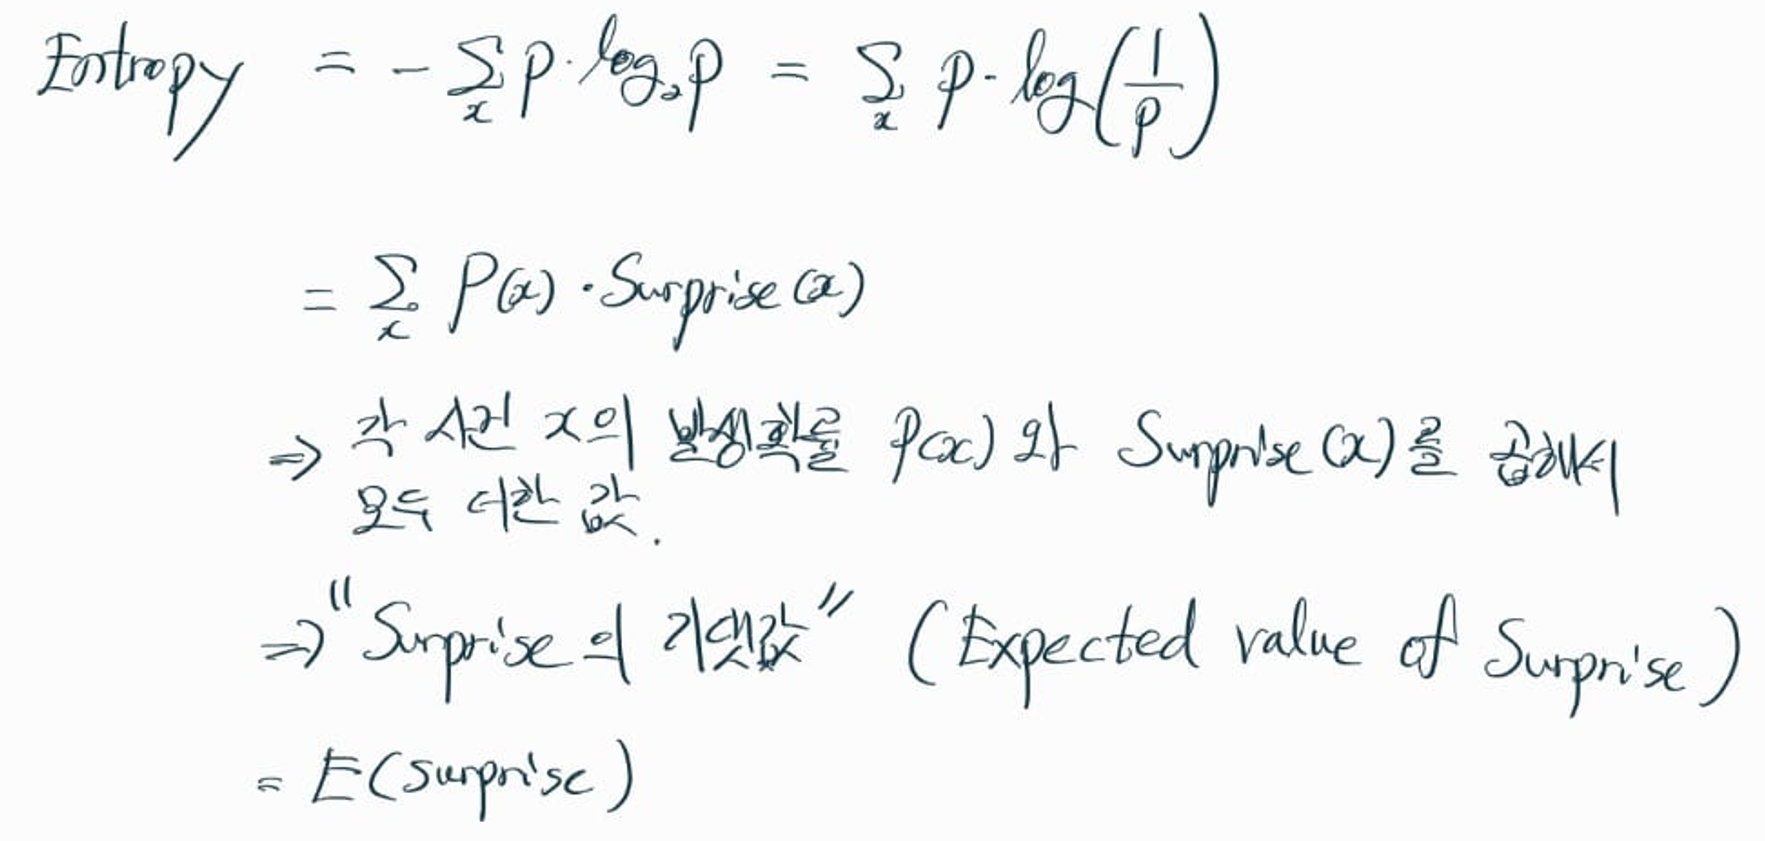 Entropy = - Σₓ p · log₂p = Σₓ p · log(1/p)
= Σₓ P(x) · Surprise(x)
⇒ 각 사건 x의 발생확률 P(x)와 Surprise(x)를 곱해서
모두 더한 값.
⇒ "Surprise의 기댓값" (Expected value of Surprise)
= E(surprise)